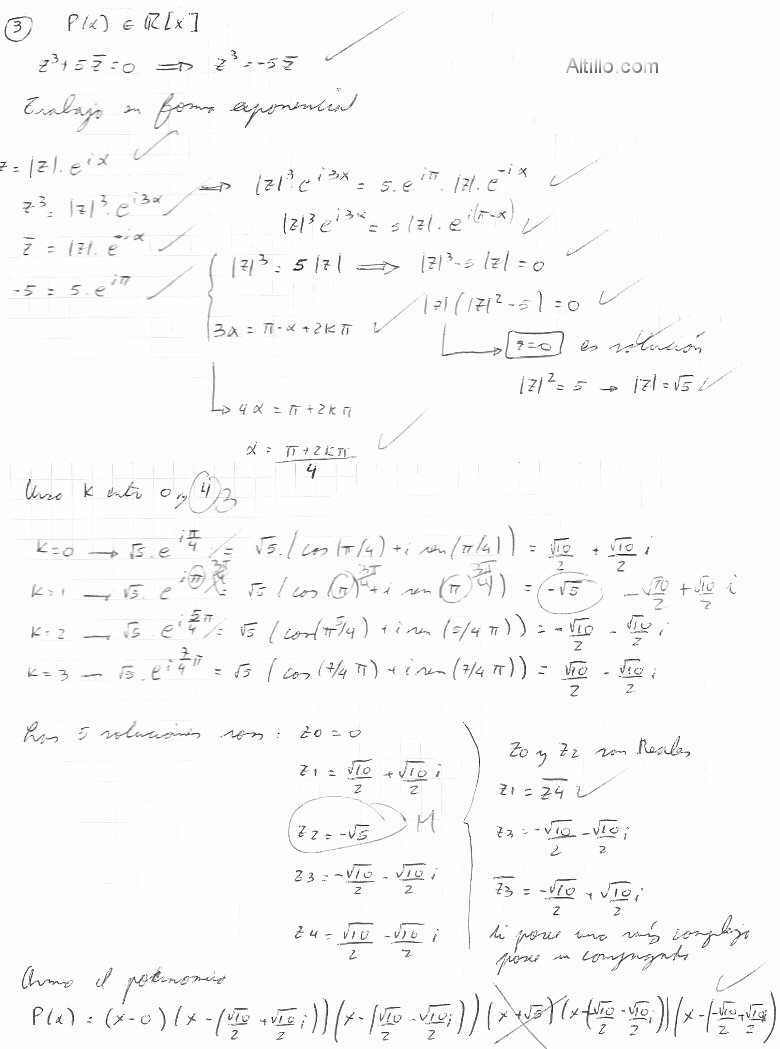 ③ P(x) ∈ ℝ[x]
z³+5z̅=0 ⟹ z³=-5z̅
Altillo.com
Trabajo en forma exponencial
z=|z|.e^{iα}
z³=|z|³.e^{i3α}
z̅=|z|.e^{-iα}
-5=5.e^{iπ}
⟹ |z|³.e^{i3α}=5.e^{iπ}.|z|.e^{-iα}
|z|³e^{i3α}=5|z|.e^{i(π-α)}
|z|³=5|z| ⟹ |z|³-5|z|=0
|z|(|z|²-5)=0
z=0 es solución
|z|²=5 → |z|=√5
3α=π-α+2kπ
4α=π+2kπ
α=(π+2kπ)/4
Uso k entre 0 y 4 3
k=0 → √5.e^{iπ/4}=√5.(cos(π/4)+i sen(π/4))=√10/2+√10/2 i
k=1 → √5.e^{iπ} 3π/4=√5(cos(π) 3π/4+i sen(π) 3π/4)=-√5 -√10/2+√10/2 i
k=2 → √5.e^{i5/4π}=√5(cos(π5/4)+i sen(5/4π))=-√10/2-√10/2 i
k=3 — √5.e^{i7/4π}=√5(cos(7/4π)+i sen(7/4π))=√10/2-√10/2 i
Las 5 soluciones son: z0=0
z1=√10/2+√10/2 i
z2=-√5 M
z3=-√10/2-√10/2 i
z4=√10/2-√10/2 i
z0 y z2 son Reales
z1=z̅4̅
z3=-√10/2-√10/2 i
z̅3̅=-√10/2+√10/2 i
Si posee una raíz compleja
posee su conjugado
Armo el polinomio
P(x)=(x-0)(x-(√10/2+√10/2 i))(x-(√10/2-√10/2 i))(x+√5)(x-(-√10/2-√10/2 i))(x-(-√10/2+√10/2 i))